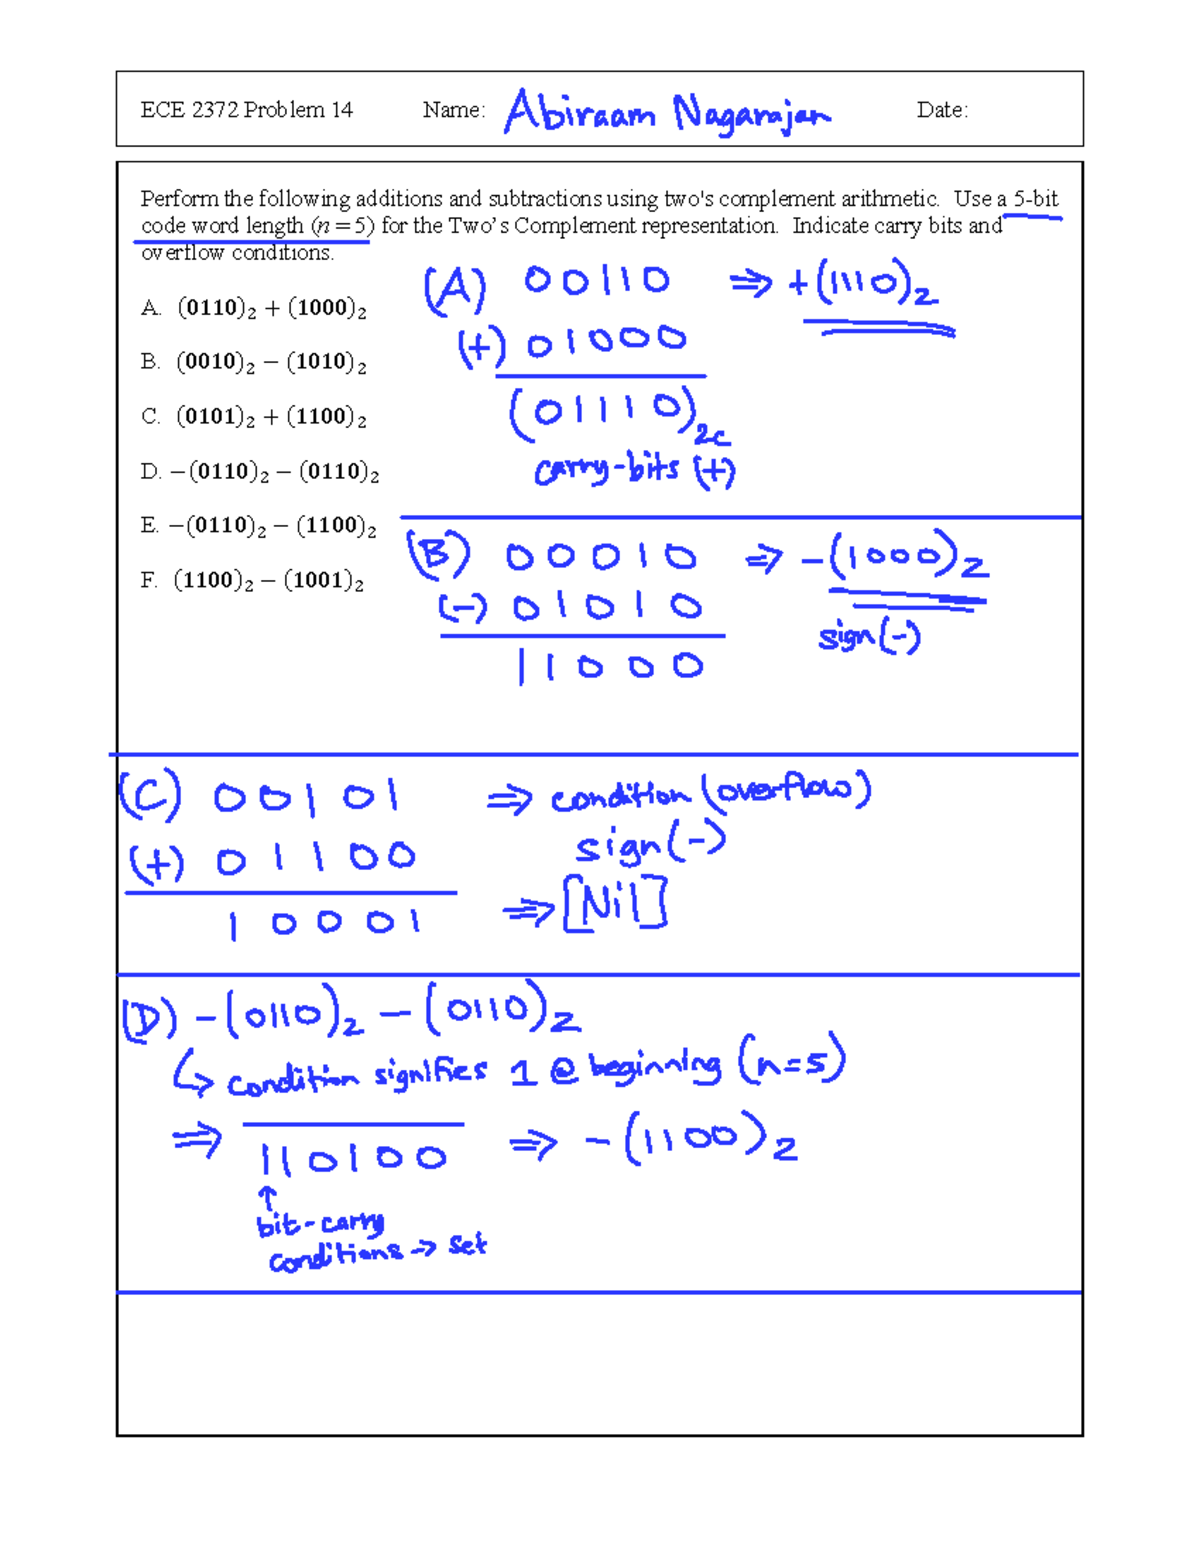 ECE 2372 Problem 14 Name: Abiraam Nagarajan Date:
Perform the following additions and subtractions using two's complement arithmetic. Use a 5-bit
code word length (n = 5) for the Two's Complement representation. Indicate carry bits and
overflow conditions.
A. (0110)₂ + (1000)₂
B. (0010)₂ − (1010)₂
C. (0101)₂ + (1100)₂
D. −(0110)₂ − (0110)₂
E. −(0110)₂ − (1100)₂
F. (1100)₂ − (1001)₂
(A) 00110 ⇒ +(1110)₂
(+) 01000
(01110)2c
carry-bits (+)
(B) 00010 ⇒ -(1000)₂
(-) 01010
sign(-)
11000
(C) 00101 ⇒ condition (overflow)
sign(-)
(+) 01100
10001 ⇒ [Nil]
(D) -(0110)₂ - (0110)₂
↳ condition signifies 1 @ beginning (n=5)
⇒ 110100 ⇒ -(1100)₂
↑
bit-carry
conditions → set